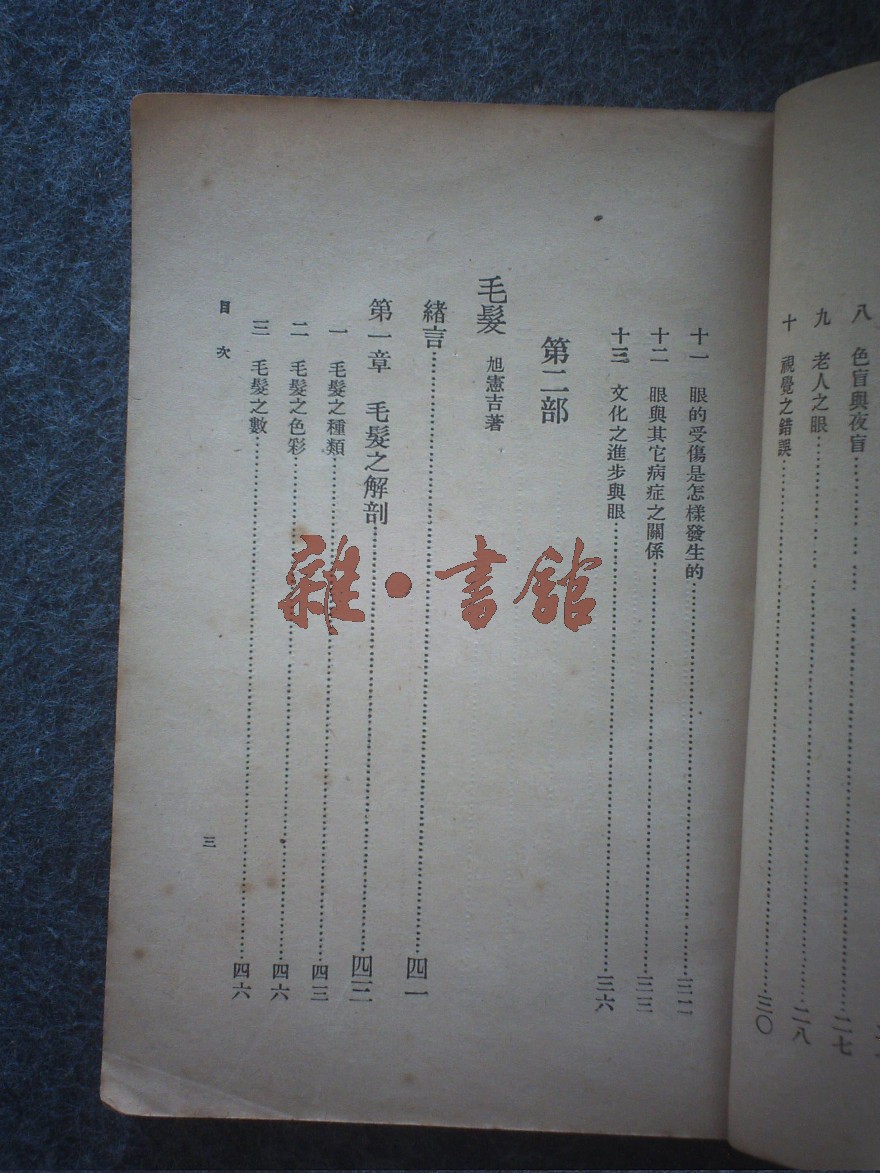 八　色盲與夜盲……二七
九　老人之眼……二八
十　視覺之錯誤……三〇
十一　眼的受傷是怎樣發生的……三二
十二　眼與其它病症之關係……三三
十三　文化之進步與眼……三六
第二部
毛髮　旭憲吉著
緒言……四一
第一章　毛髮之解剖……四三
一　毛髮之種類……四三
二　毛髮之色彩……四六
三　毛髮之數……四六
目次
三
雜·書館